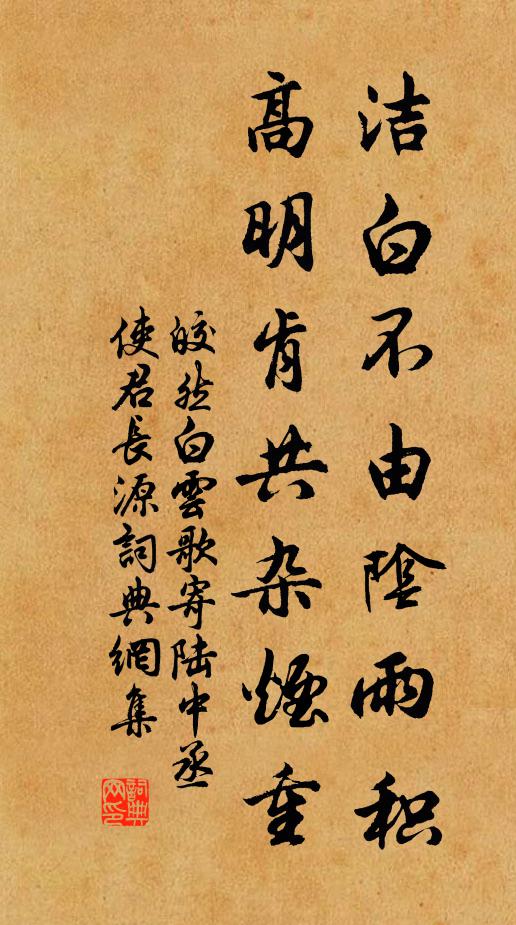 洁白不由陰雨积
高明肯共杂煙重
皎然白雲歌寄陆中丞
使君長源詞典網集
詞典
网印